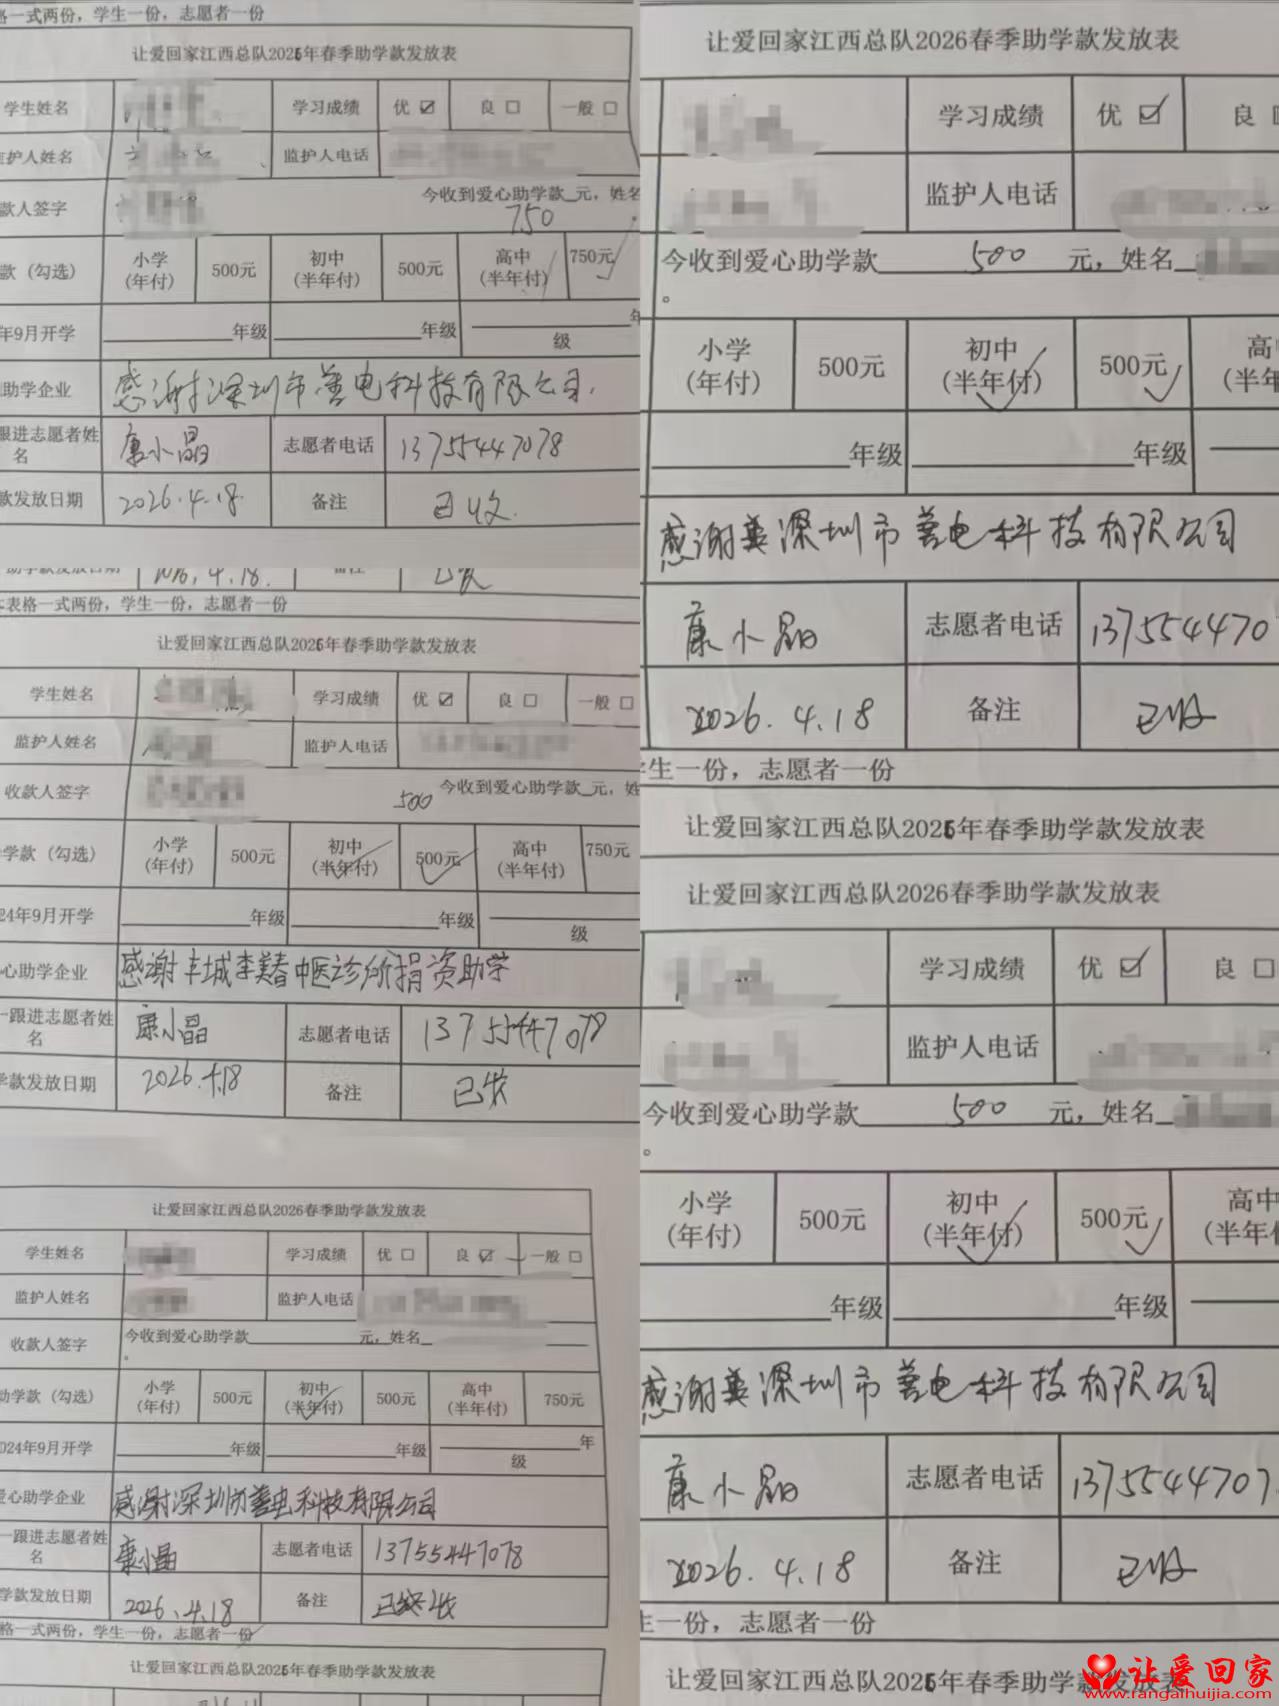 格一式两份，学生一份，志愿者一份
让爱回家江西总队2026年春季助学款发放表
学生姓名 学习成绩 优 ☑ 良 □ 一般 □
监护人姓名 监护人电话
款人签字 今收到爱心助学款_元，姓名
750
款（勾选） 小学（年付） 500元 初中（半年付） 500元 高中（半年付） 750元
年9月开学 年级 年级 年级
助学企业 感谢深圳市善电科技有限公司.
跟进志愿者姓名 康小晶 志愿者电话 13755447078
款发放日期 2026.4.18. 备注 已收.
助学款发放日期 2026.4.18. 备注
本表格一式两份，学生一份，志愿者一份
让爱回家江西总队2026年春季助学款发放表
学生姓名 学习成绩 优 ☑ 良 □ 一般 □
监护人姓名 监护人电话
收款人签字 500 今收到爱心助学款_元，姓
学款（勾选） 小学（年付） 500元 初中（半年付） 500元 高中（半年付） 750元
24年9月开学 年级 年级 级
心助学企业 感谢丰城李美春中医诊所捐资助学
一跟进志愿者姓名 康小晶 志愿者电话 13755447078
学款发放日期 2026.4.18 备注 已发
让爱回家江西总队2026春季助学款发放表
学生姓名 学习成绩 优 □ 良 ☑ 一般 □
监护人姓名 监护人电话
收款人签字 今收到爱心助学款 元，姓名 。
助学款（勾选） 小学（年付） 500元 初中（半年付） 500元 高中（半年付） 750元
024年9月开学 年级 年级 年级
爱心助学企业 感谢深圳市善电科技有限公司
一跟进志愿者姓名 康小晶 志愿者电话 13755447078
学款发放日期 2026.4.18 备注
格一式两份，学生一份，志愿者一份
让爱回家江西总队2026年春季助学款发放表
让爱回家江西总队2026春季助学款发放表
学习成绩 优 ☑ 良
监护人电话
今收到爱心助学款 500 元，姓名
。
小学（年付） 500元 初中（半年付） 500元 高中（半年
年级 年级
感谢 深圳市善电科技有限公司
康小晶 志愿者电话 1375544707
2026.4.18 备注 已收
学生一份，志愿者一份
让爱回家江西总队2026年春季助学款发放表
让爱回家江西总队2026春季助学款发放表
学习成绩 优 ☑ 良 □
监护人电话
今收到爱心助学款 500 元，姓名
。
小学（年付） 500元 初中（半年付） 500元 高中（半年付
年级 年级
感谢 深圳市善电科技有限公司
康小晶 志愿者电话 1375544707
2026.4.18 备注 已收
生一份，志愿者一份
让爱回家江西总队2026年春季助学款发放表
让爱回家
www.rangaihuijia.com